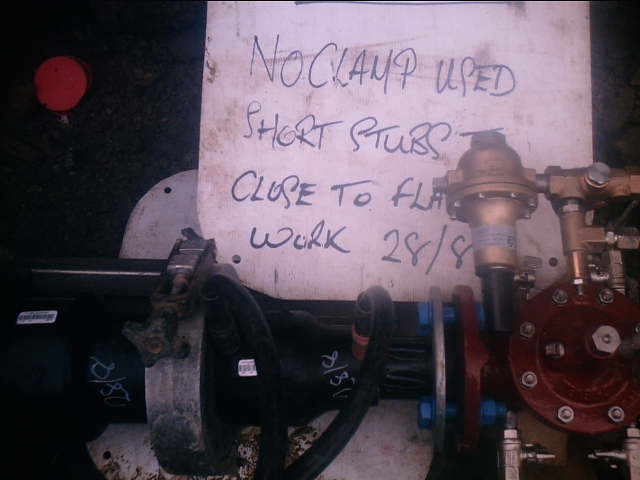 NO CLAMP USED
SHORT STUBS -
CLOSE TO FLA
WORK 28/8